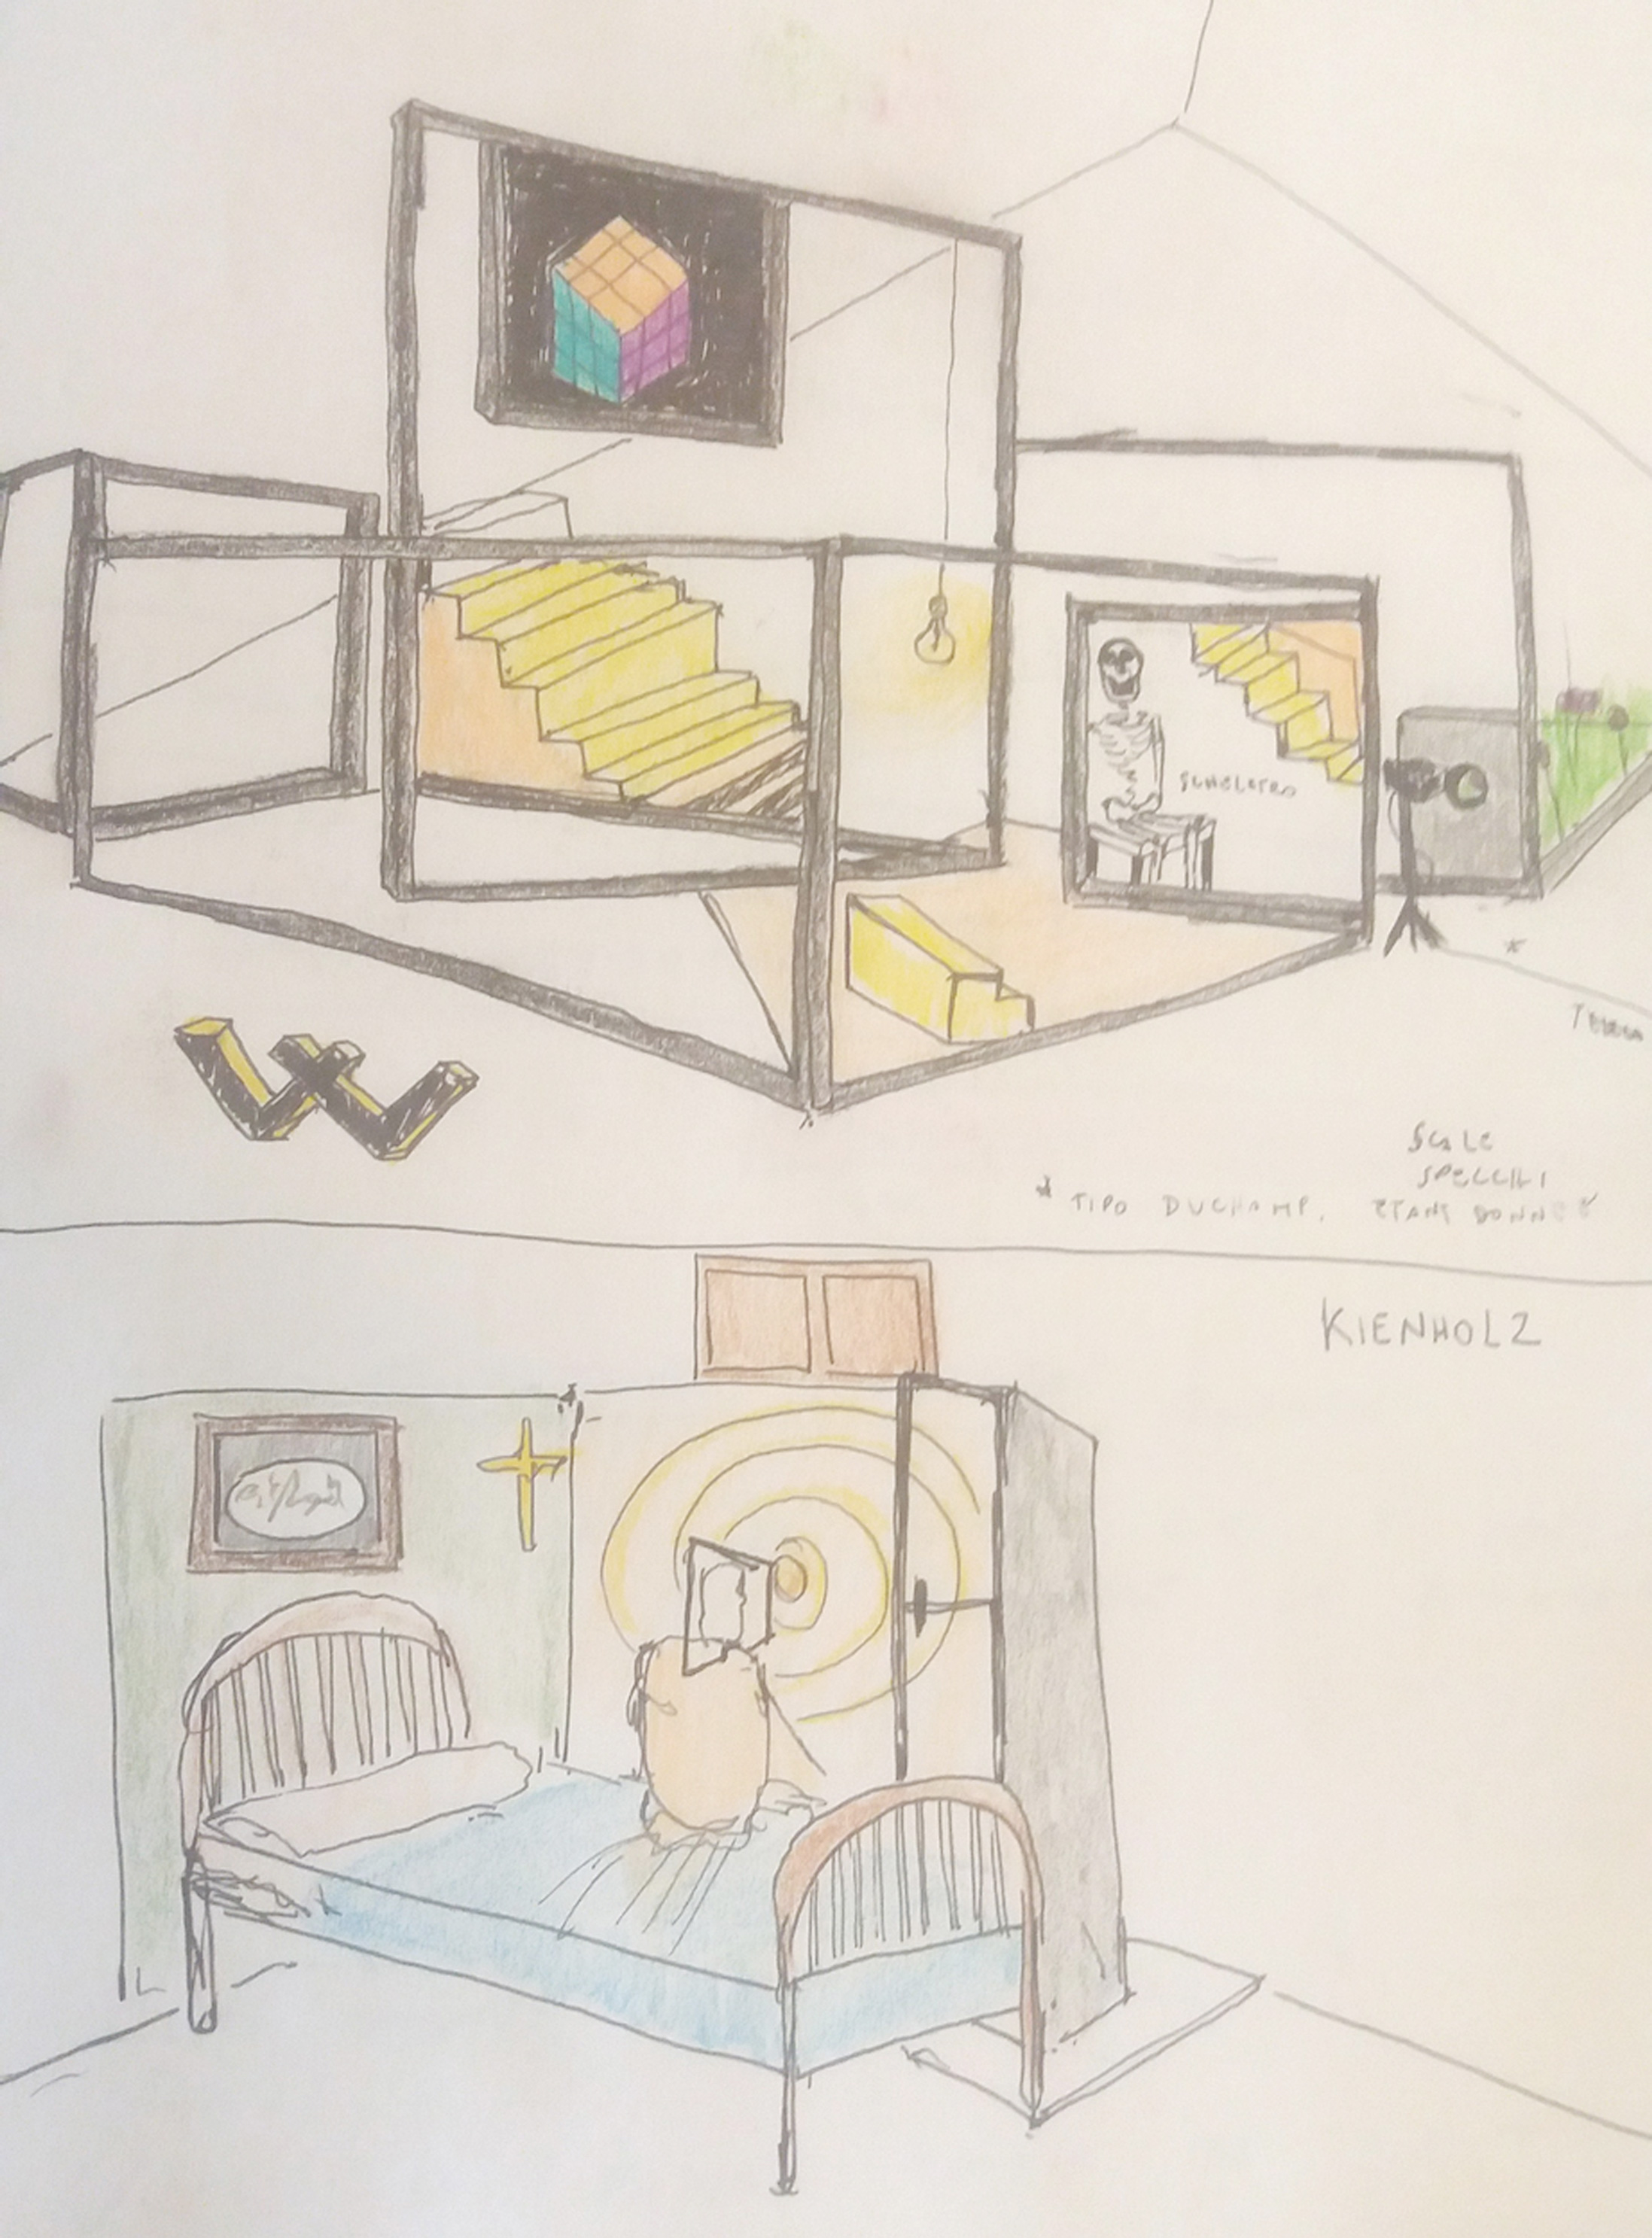 SCHELETRO
SCALE
SPECCHI
* TIPO DUCHAMP, ETANT DONNÉ
KIENHOLZ